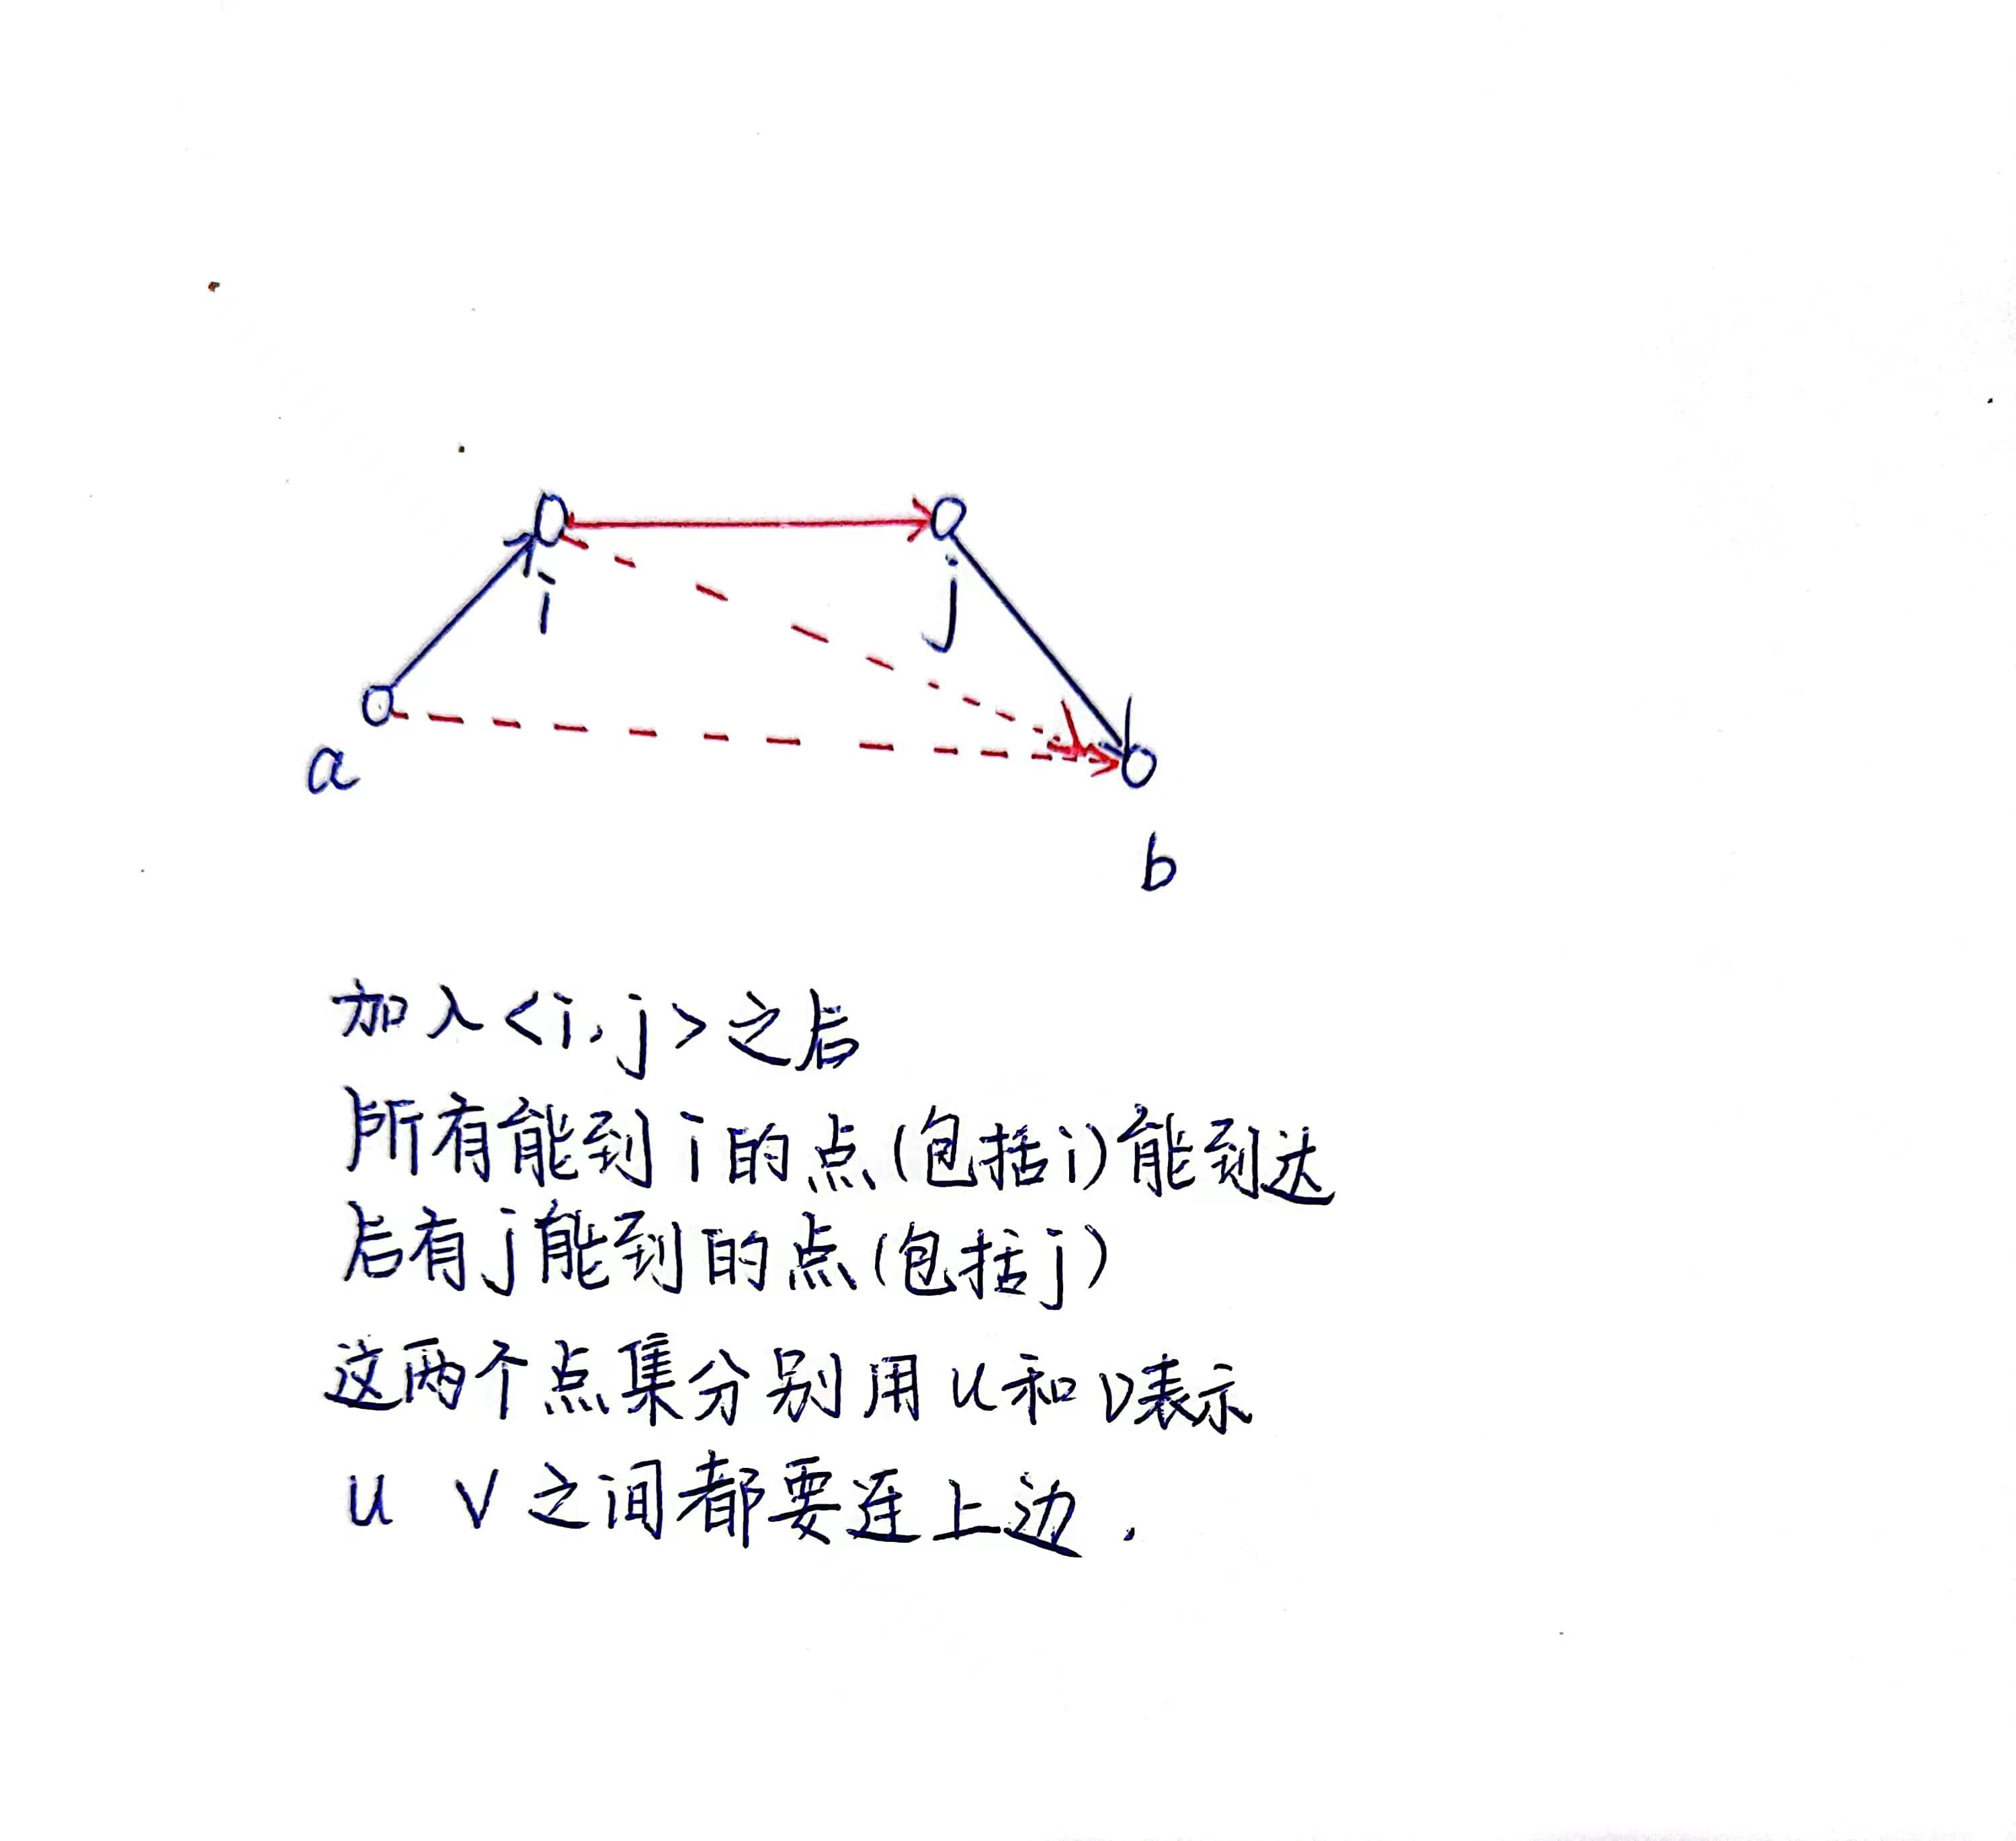 i
j
a
b
加入<i,j>之后
所有能到i的点(包括i)能到达
后有j能到的点(包括j)
这两个点集分别用u和v表示
u v之间都要连上边.